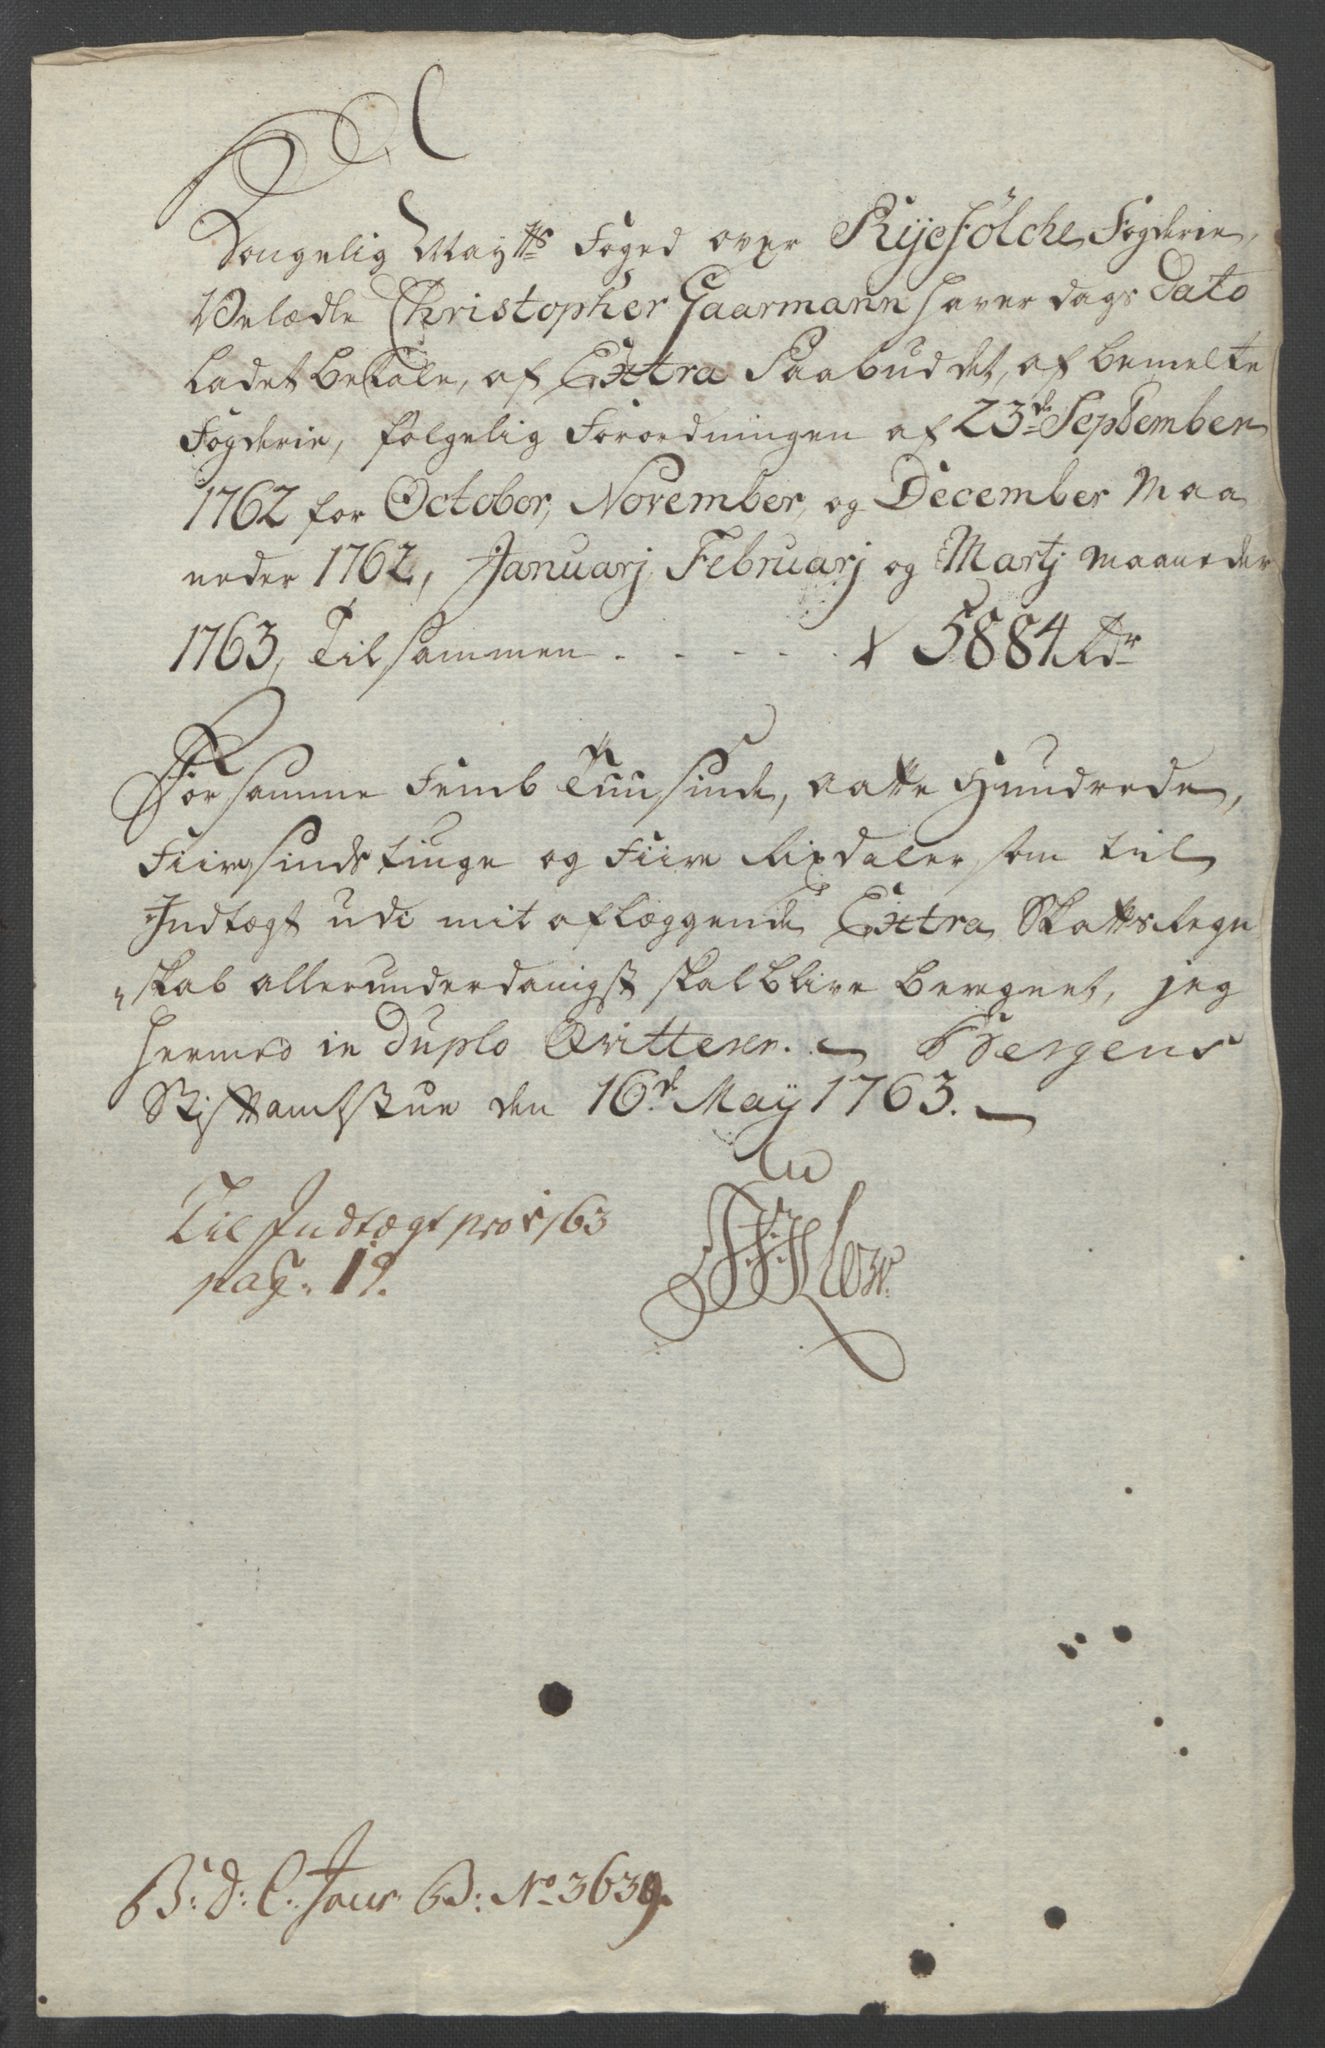 Kongelig May:tts Foged over Ryefölche Fogderie,
Velædle Christopher Gaarmann haver dags Dato
Ladet betale, af Extra Paabuddet, af bemelte
Fogderie, følgelig Forordningen af 23de September
1762 for October, November, og December Maa
neder 1762, Januarj, Februarj og Martj Maaneder
1763, Tilsammen . . . . . 5884 Rdr
For samme Femb Tuusinde, aatte Hundrede,
Fiiresindstiuge og Fiire Rixdaler, som til
Indtægt udi mit aflæggende Extra Skatts Regn
skab allerunderdanigst skal blive beregnet, jeg
hermed in Duplo Qvitterer. Bergens
Stiftamtstue den 16de May 1763.
Til Indtægt pro 1763
pag: 19.
B: d: C: Jour B: No 3639.